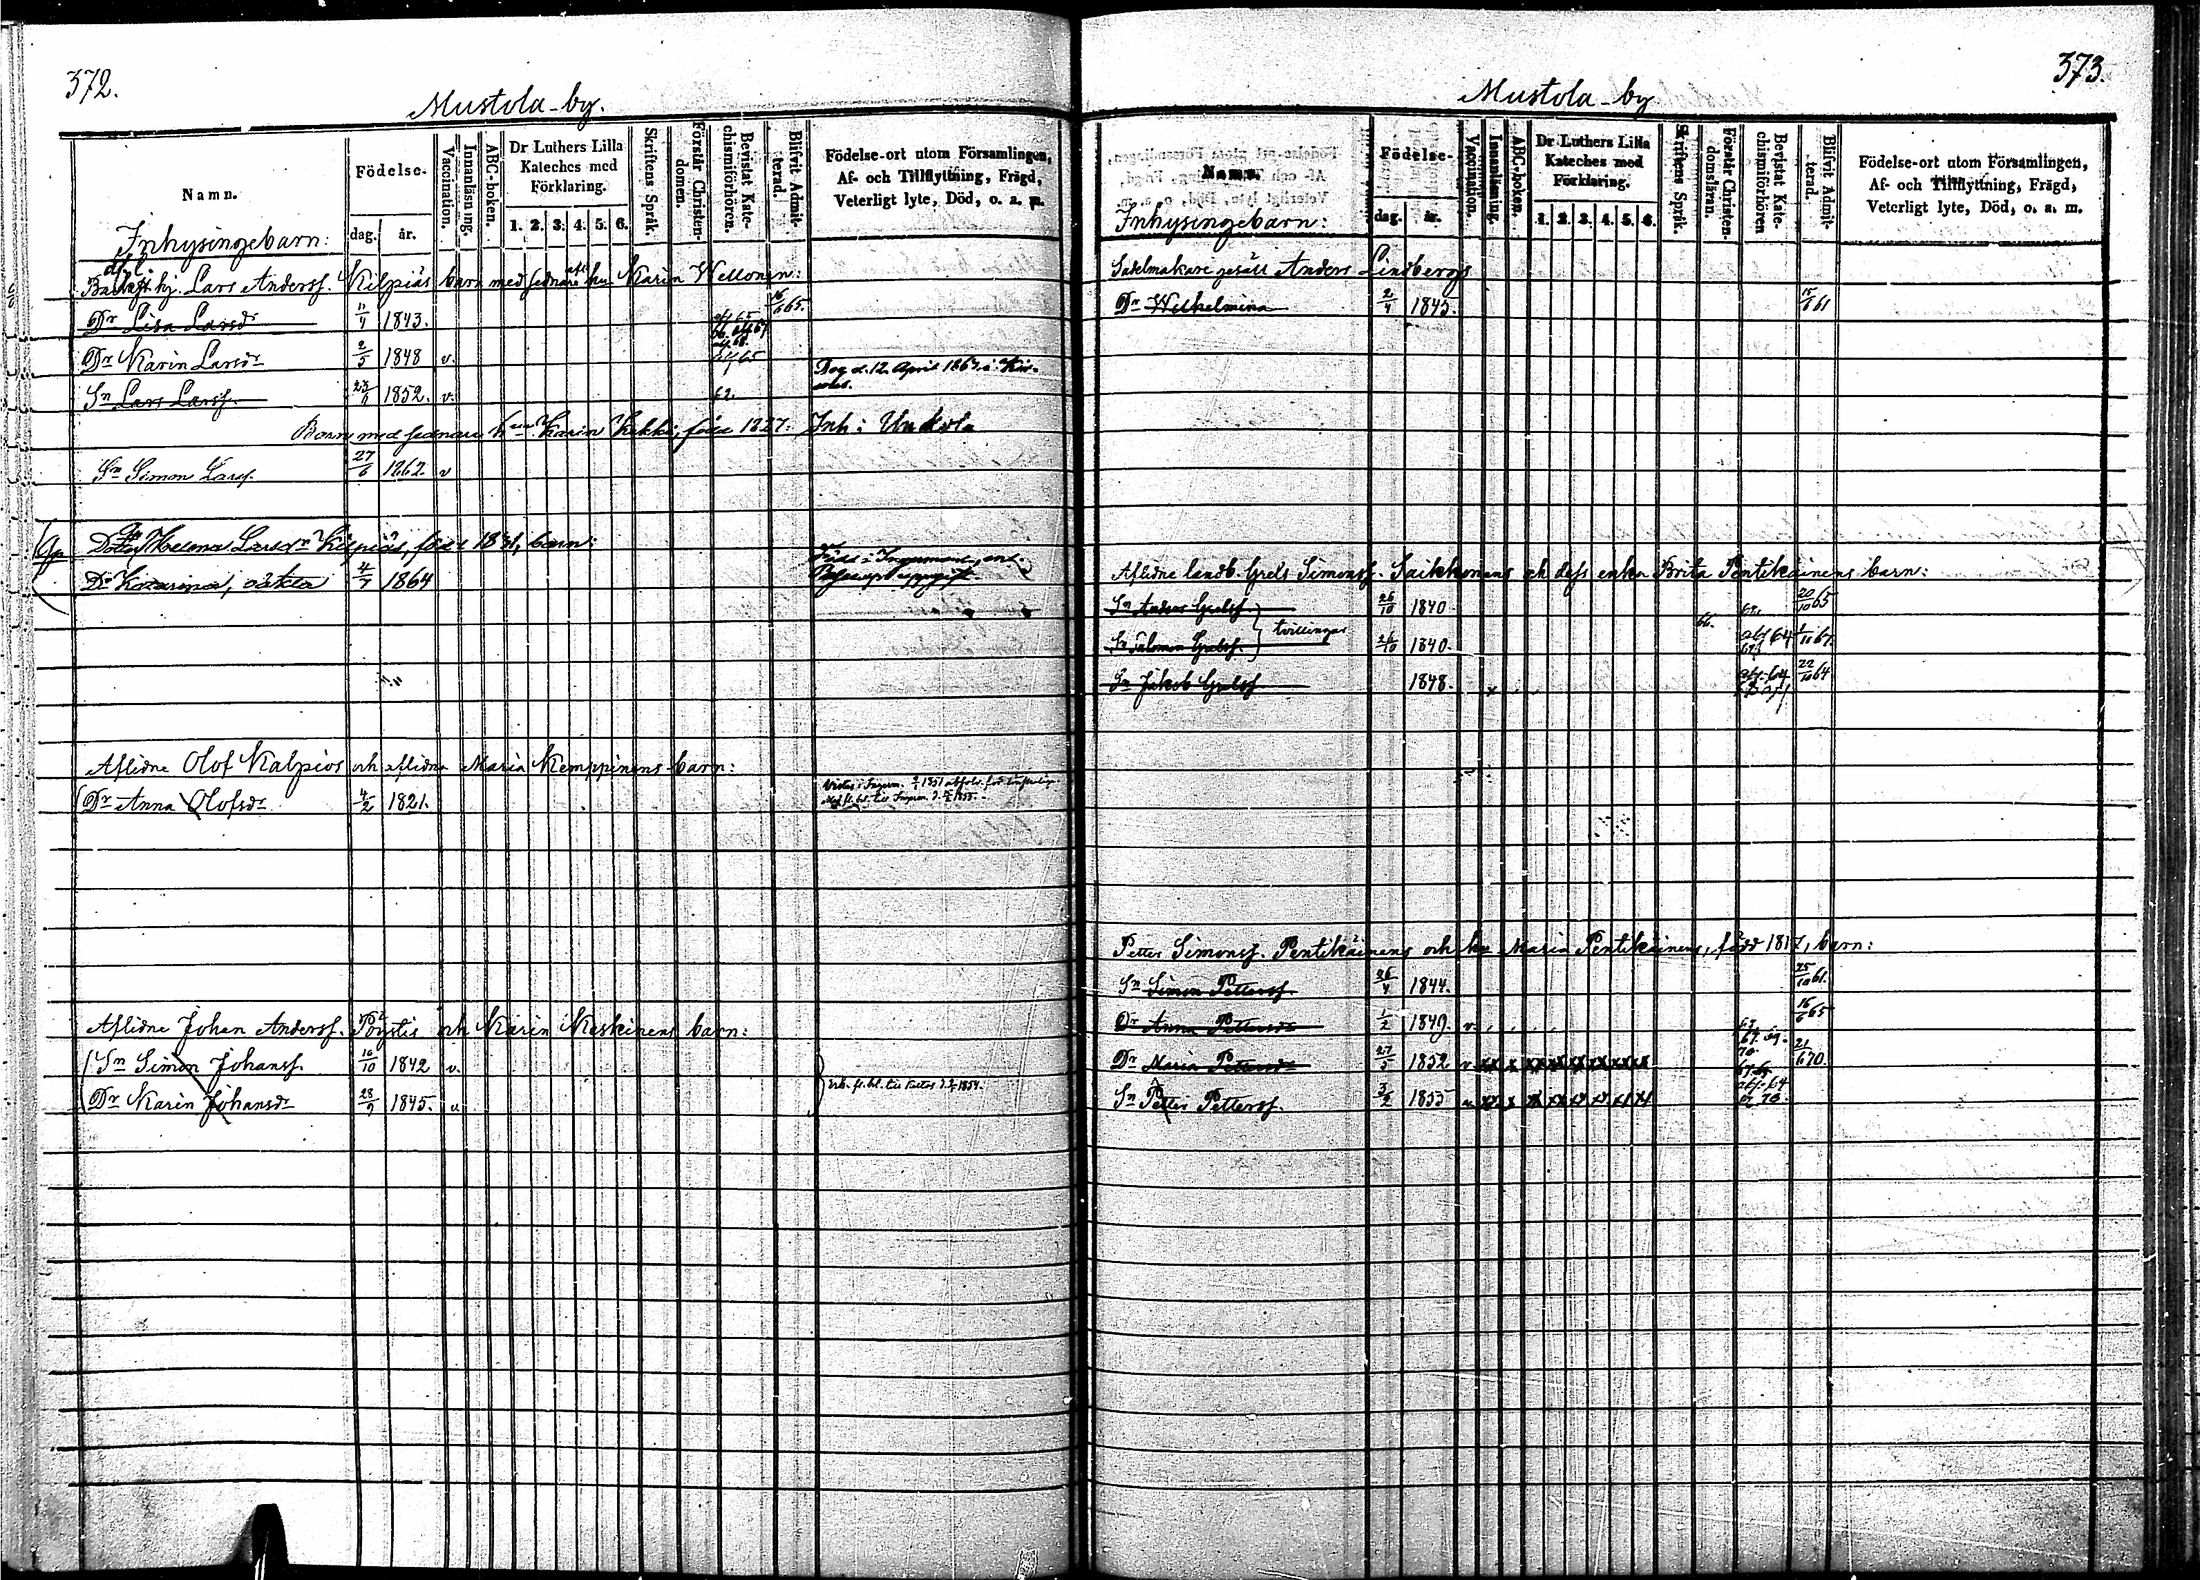 372.
Mustola-by.
Namn.
Födelse-
dag.
år.
Vaccination.
Innanläsning.
ABC-boken.
Dr Luthers Lilla
Kateches med
Förklaring.
1. 2. 3. 4. 5. 6.
Skriftens Språk.
Förstår Christen-
domen.
Bevistat Kate-
chismiförhören.
Blifvit Admit-
terad.
Födelse-ort utom Församlingen,
Af- och Tillflyttning, Frägd,
Veterligt lyte, Död, o. a. m.
Inhysingebarn:
hj. Lars Anderss. Kilpiäs barn med sednare hu Karin Wellonen:
Dr Lisa Larsdr 11/4 1843. 16/6 65.
Dr Karin Larsdr 2/5 1848 v. 65
Dog d. 12 April 1867. i
Sn Lars Larss. 23/ 1852. v. 62.
Barn med sednare hun Karin Kekki, född 1827: Inh: Unkola
Sn Simon Larss. 27/6 1862 v
Helena Larsdr Kilpiäs, född 1831, barn:
Dr Katarina, oäkta 4/7 1864
Aflidne Olof Kalpios och aflidna Maria Kemppinens barn:
Dr Anna Olofsdr 4/2 1821.
Aflidne Johan Anderss. Pöystis och Karin Kaskinens barn:
Sn Simon Johanss. 10/10 1842 v.
Dr Karin Johansdr 28/9 1845. v.
373.
Mustola-by
Namn.
Födelse-
dag.
år.
Vaccination.
Innanläsning.
ABC-boken.
Dr Luthers Lilla
Kateches med
Förklaring.
1. 2. 3. 4. 5. 6.
Skriftens Språk.
Förstår Christen-
domsläran.
Bevistat Kate-
chismiförhören
Blifvit Admit-
terad.
Födelse-ort utom Församlingen,
Af- och Tillflyttning, Frägd,
Veterligt lyte, Död, o. a. m.
Inhysingebarn:
Sadelmakare gesäll Anders Lindbergs
Dr Wilhelmina 2/4 1845. 15/6 61
Aflidne landb. Grels Simonss. Saikkonens och dess enka Brita Pentikäinens barn:
Sn Anders Grelss. 26/10 1840 20/10 65
tvillingar
Sn Salomon Grelss. 26/10 1840. 64
Sn Jakob Grelss 1848. 22/10 64
Petter Simonss. Pentikäinens och hu Maria Pentikäinens, född 1817, barn:
Sn Simon Petterss. 26/4 1844. 25/10 61.
Dr Anna Pettersdr 1/2 1849. v. 16/6 65
Dr Maria Pettersdr 27/5 1852 v. 21/6 70.
Sn Petter Petterss. 3/2 1855